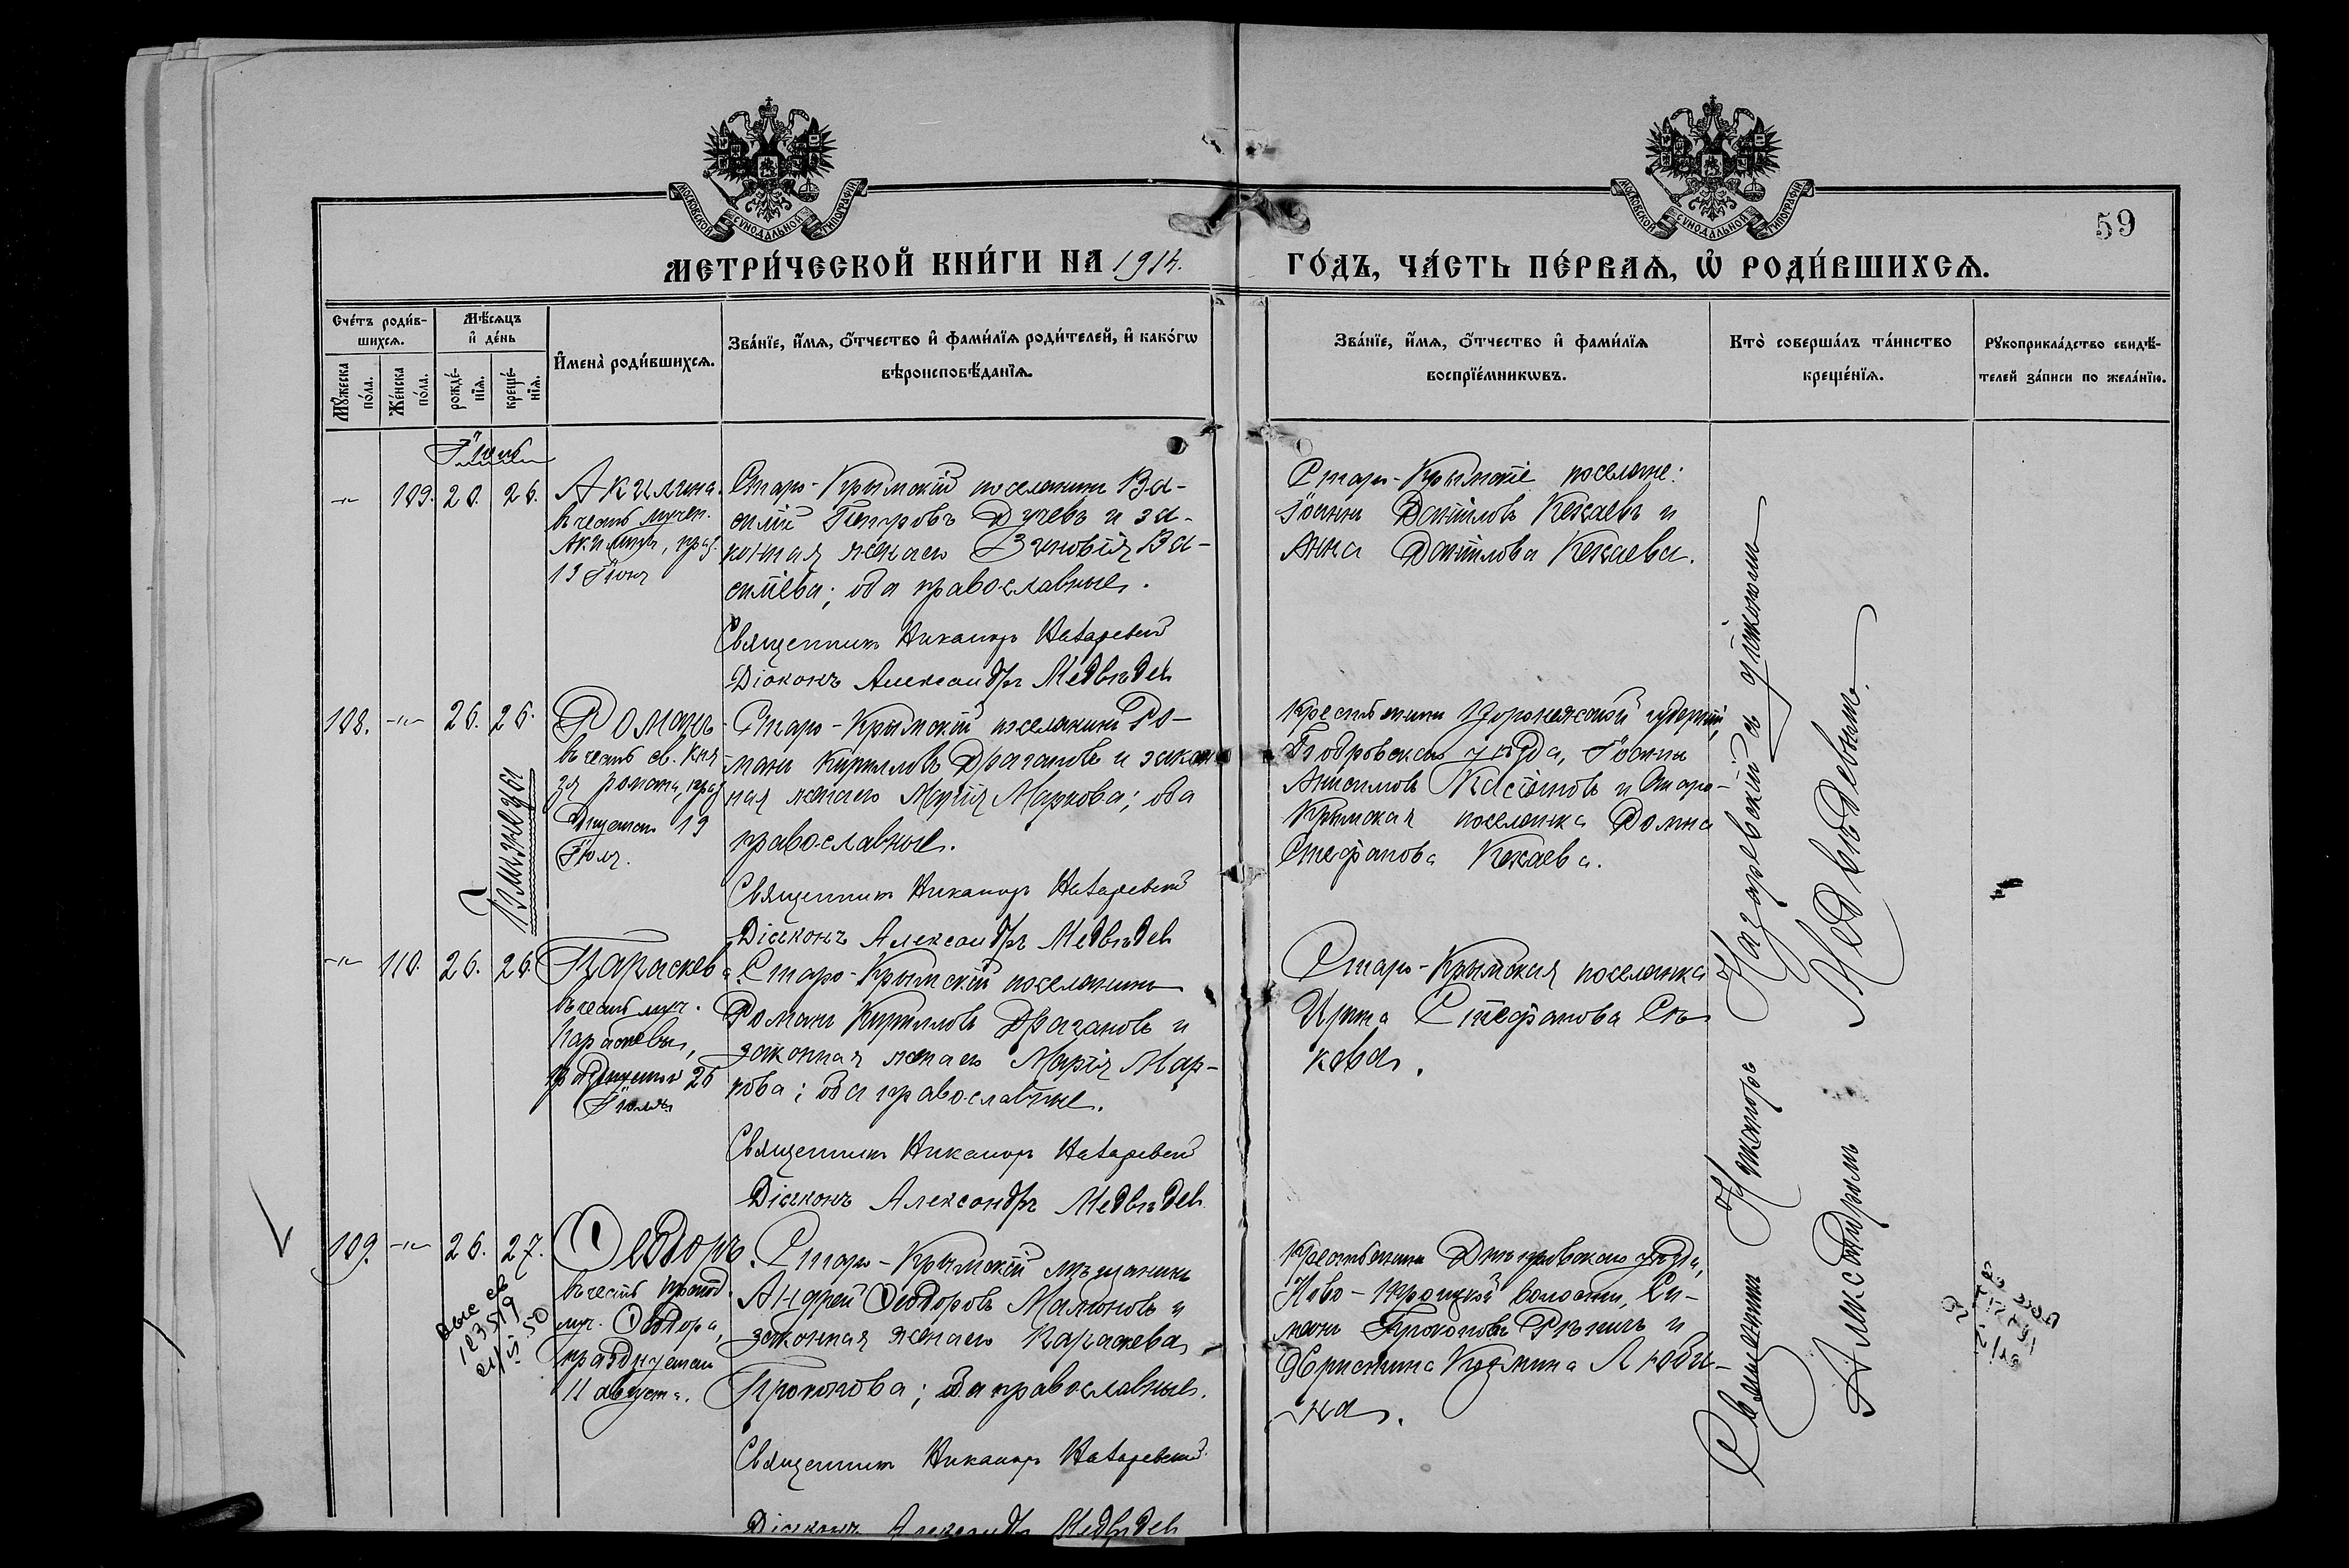 МОСКОВСКОЙ СѴНОДАЛЬНОЙ ТИПОГРАФІИ
МОСКОВСКОЙ СѴНОДАЛЬНОЙ ТИПОГРАФІИ
59
МЕТРИ́ЧЕСКОЙ КНИ́ГИ НА 1914. ГО́ДЪ, ЧА́СТЬ ПЕ́РВАѦ, Ѡ РОДИ́ВШИХСѦ.
Сче́тъ роди́в-
шихсѧ.
Мꙋ́жеска по́ла.
Же́нска по́ла.
Мѣ́сѧцъ
и де́нь
рожде́-
нїѧ.
креще́-
нїѧ.
Имена̀ роди́вшихсѧ.
Зва́нїе, и́мѧ, ѻ́тчество и фами́лїѧ роди́телей, и како́гѡ
вѣроисповѣ́данїѧ.
Зва́нїе, и́мѧ, ѻ́тчество и фами́лїѧ
воспрїе́мникѡвъ.
Кто̀ соверша́лъ та́инство
креще́нїѧ.
Рꙋкоприкла́дство свидѣ́-
телей за́писи по жела́нїю.
109. 20. 26.
Акилина.
въ честь мучен.
13 Іюня
Старо-Крымскій поселянинъ Ва-
силій Петровъ Дучевъ и за-
конная жена его Зиновія Ва-
силіева; оба православные.
Священникъ Никаноръ Назаревскій
Діаконъ Александръ Медвѣдевъ
Старо-Крымскіе поселяне:
Іоаннъ Даніиловъ Кекаевъ и
Анна Даніилова Кекаева.
108. -"- 26. 26.
Романъ
въ честь св. кня
зя романа, праз
днуемаго 19
Іюля.
Старо-Крымскій поселянинъ Ро-
манъ Кирилловъ Драгановъ и закон
ная жена его Марія Маркова; оба
православные.
Священникъ Никаноръ Назаревскій
Діаконъ Александръ Медвѣдевъ
Крестьянинъ Воронежской губерніи,
Бобровскаго уѣзда, Іоаннъ
Анисимовъ и Старо-
Крымская поселянка Домна
Стефанова Кекаева.
-"- 110. 26. 26.
Параскева
въ честь муч.
Параскевы,
празднуемой 26
Іюля
Старо-Крымскій поселянинъ
Романъ Кирилловъ Драгановъ и
законная жена его Марія Мар-
кова; оба православные.
Священникъ Никаноръ Назаревскій
Діаконъ Александръ Медвѣдевъ
Старо-Крымская поселянка
Ирина Стефанова
кова.
109. -"- 26. 27.
Ѳеодоръ
въ честь препод.
муч. Ѳеодора,
празднуемаго
11 августа.
выс св
123519
Старо-Крымскій мѣщанинъ
Андрей Ѳеодоровъ Малюковъ и
законная жена его Параскева
Прокопова; оба православные.
Священникъ Никаноръ Назаревскій
Діаконъ Александръ Медвѣдевъ
Крестьянинъ Днѣпровскаго уѣзда,
Ново-Троицкой волости, Си-
меонъ Прокоповъ Рѣпичъ и
Христина Кузмина Люби-
Священникъ Никаноръ Назаревскій съ діакономъ
Александромъ Медвѣдевымъ.